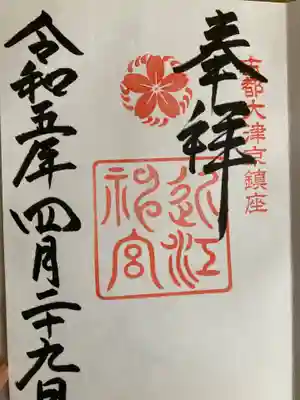 古都大津京鎮座
奉拝
近江
神宮
令和五年四月二十九日